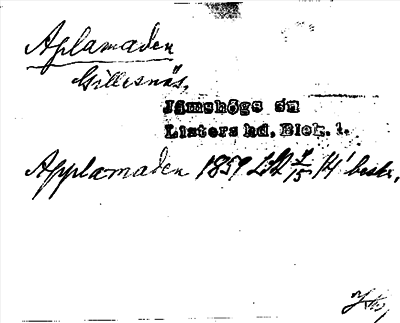 Aplamaden
Gillesnäs.
Jämshögs sn
Listers hd, Blek. l.
Applamaden 1859 LSA 7/15 14' beskr.